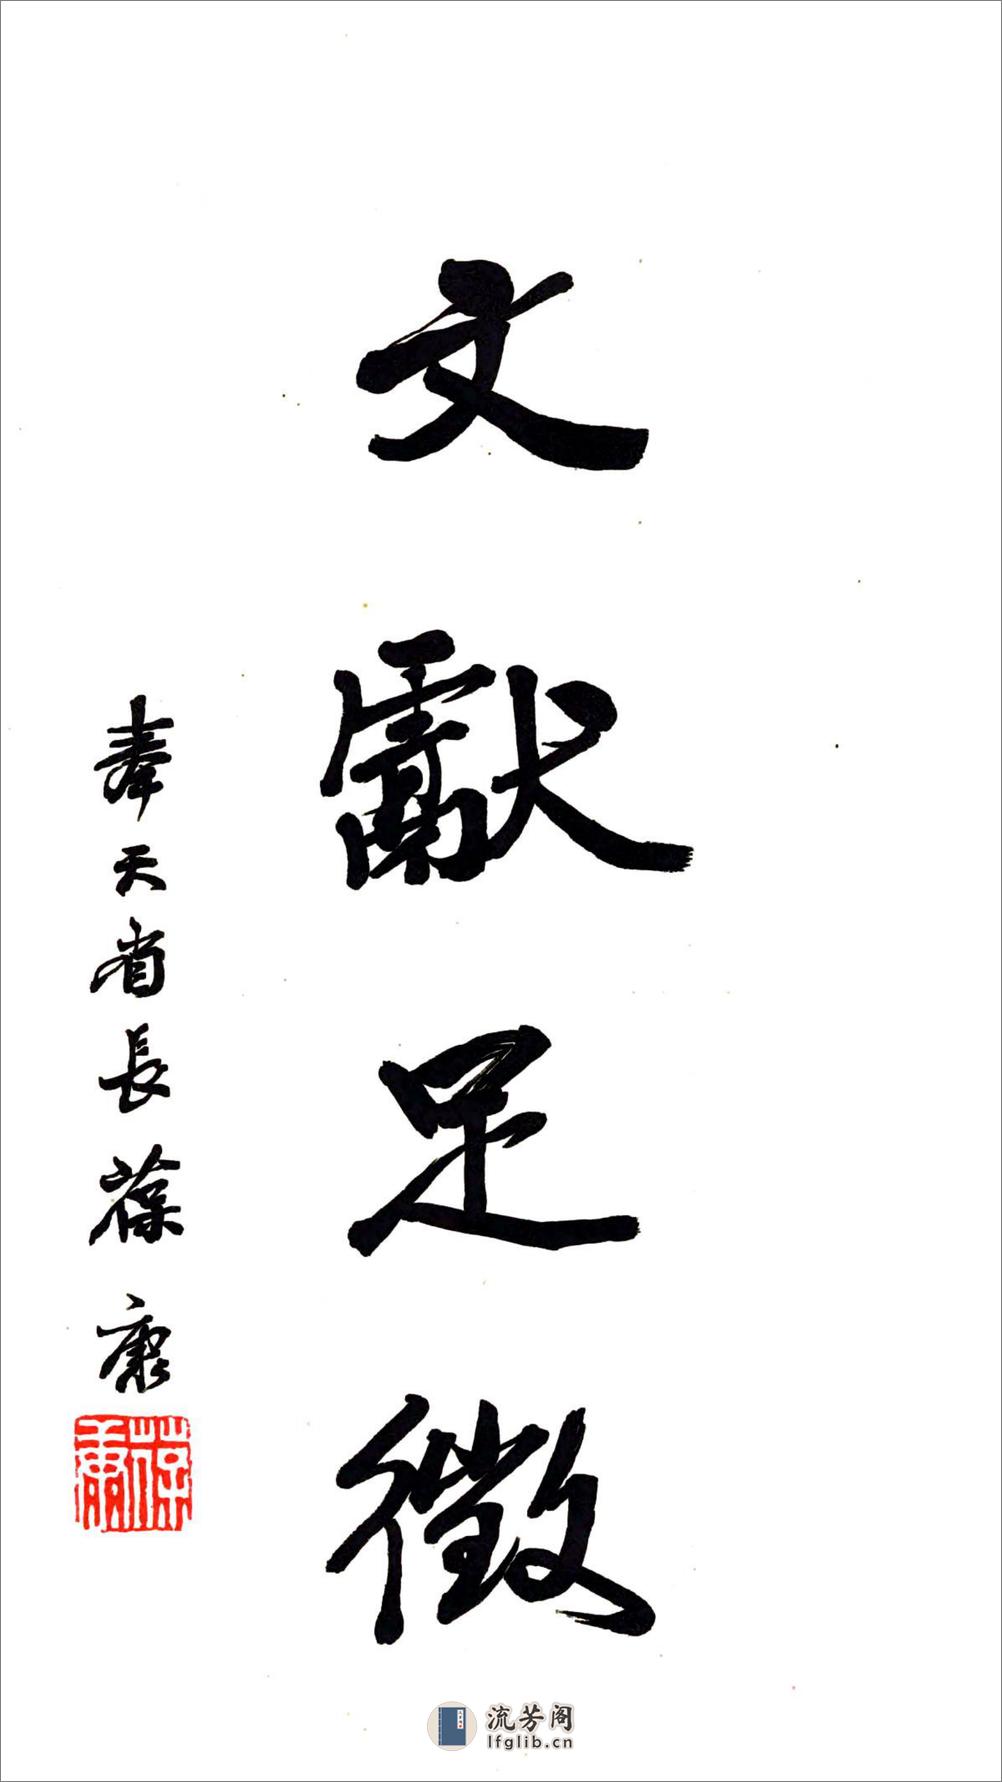 文獻足徵
奉天省長葆康
葆康
流芳阁
lfglib.cn